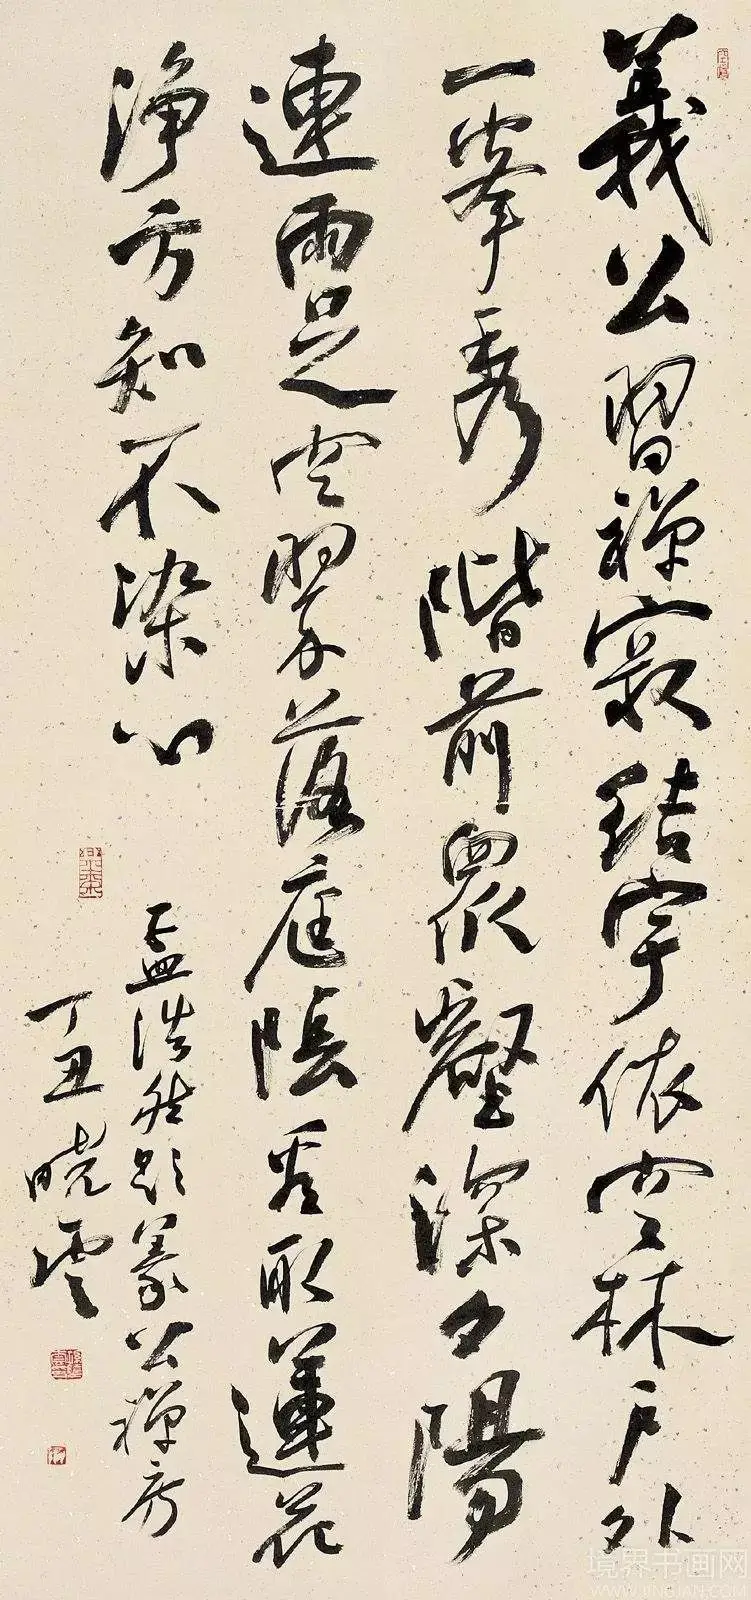 義公習禪寂結宇依空林戶外
一峯秀階前眾壑深夕陽
連雨足空翠落庭陰看取蓮花
淨方知不染心
孟浩然題義公禪房
丁丑曉雲
境界书画网
WWW.JINGJIAN.COM